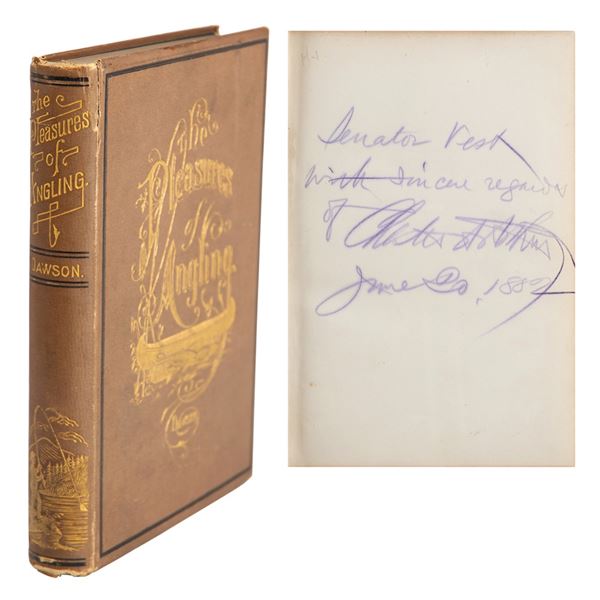 The
Pleasures
of
Angling.
Dawson.
The
Pleasures
of
Angling.
Senator Vest
with Sincere regards
of Chester A Arthur
June 20, 1882